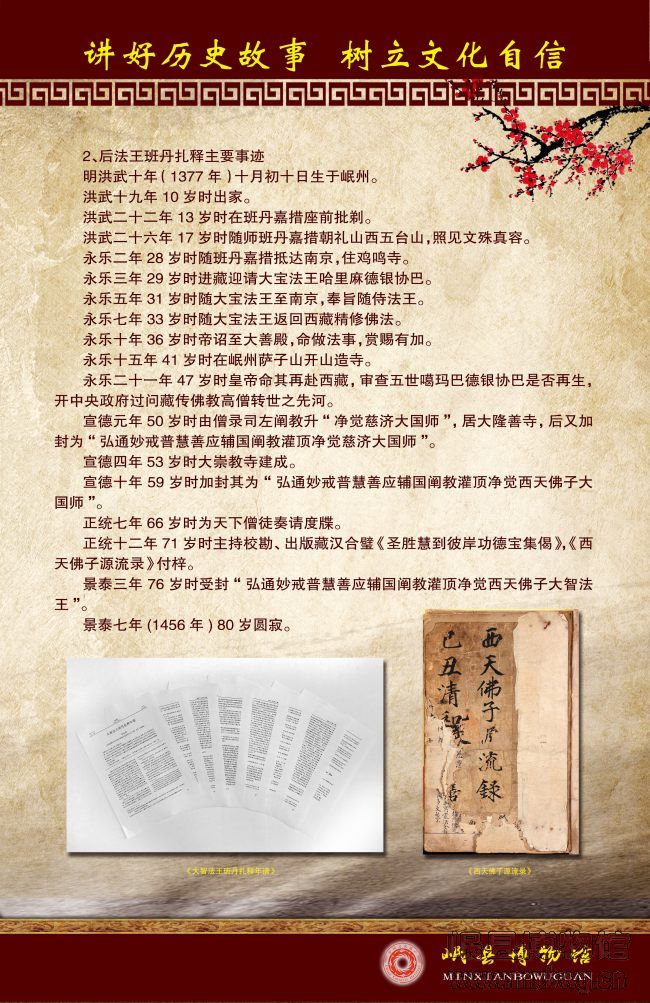 讲好历史故事 树立文化自信
2、后法王班丹扎释主要事迹
明洪武十年（1377 年）十月初十日生于岷州。
洪武十九年 10 岁时出家。
洪武二十二年 13 岁时在班丹嘉措座前批剃。
洪武二十六年 17 岁时随师班丹嘉措朝礼山西五台山，照见文殊真容。
永乐二年 28 岁时随班丹嘉措抵达南京，住鸡鸣寺。
永乐三年 29 岁时进藏迎请大宝法王哈里麻德银协巴。
永乐五年 31 岁时随大宝法王至南京，奉旨随侍法王。
永乐七年 33 岁时随大宝法王返回西藏精修佛法。
永乐十年 36 岁时帝诏至大善殿，命做法事，赏赐有加。
永乐十五年 41 岁时在岷州萨子山开山造寺。
永乐二十一年 47 岁时皇帝命其再赴西藏，审查五世噶玛巴德银协巴是否再生，
开中央政府过问藏传佛教高僧转世之先河。
宣德元年 50 岁时由僧录司左阐教升“净觉慈济大国师”，居大隆善寺，后又加
封为“弘通妙戒普慧善应辅国阐教灌顶净觉慈济大国师”。
宣德四年 53 岁时大崇教寺建成。
宣德十年 59 岁时加封其为“弘通妙戒普慧善应辅国阐教灌顶净觉西天佛子大
国师”。
正统七年 66 岁时为天下僧徒奏请度牒。
正统十二年 71 岁时主持校勘、出版藏汉合璧《圣胜慧到彼岸功德宝集偈》，《西
天佛子源流录》付梓。
景泰三年 76 岁时受封“弘通妙戒普慧善应辅国阐教灌顶净觉西天佛子大智法
王”。
景泰七年（1456 年）80 岁圆寂。
西天佛子
流錄
己丑清
《大智法王班丹扎释年谱》
《西天佛子源流录》
岷县博物馆
MINXIANBOWUGUAN